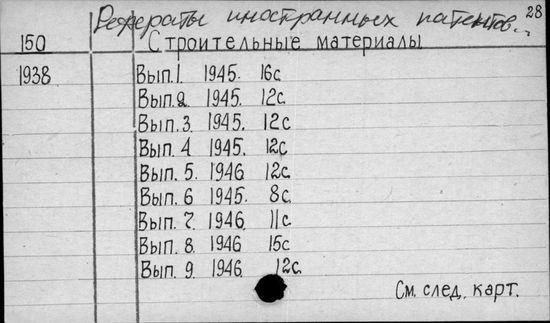 Рефераты иностранных патентов... 28
150 Строительные материалы
1938 Вып. 1. 1945. 16с
Вып. 2 1945. 12с.
Вып. 3. 1945. 12с
Вып. 4 1945. 12с
Вып. 5. 1946 12с.
Вып. 6 1945. 8с.
Вып. 7. 1946. 11с
Вып. 8. 1946 15с
Вып. 9. 1946. 12с.
См. след. карт.